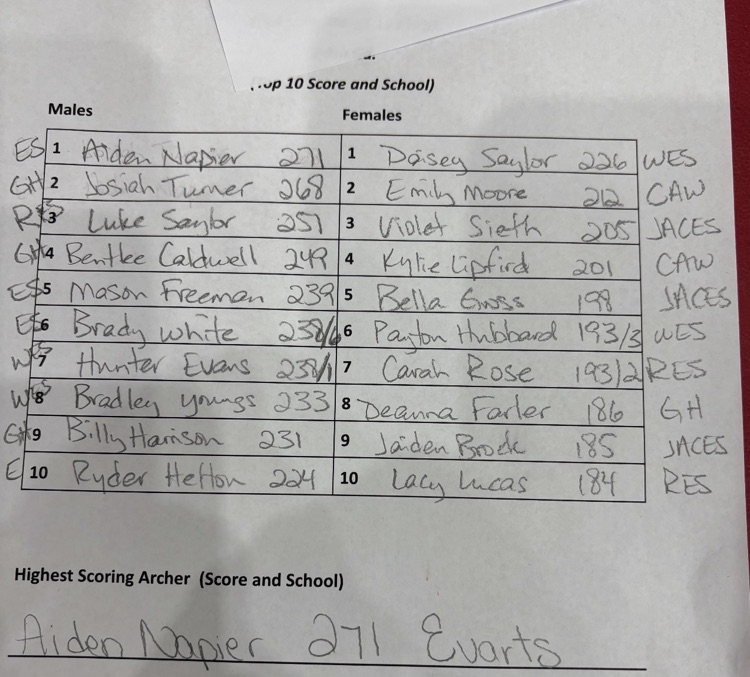 10 Score and School)
Males Females
ES 1 Aiden Napier 271 1 Daisey Saylor 226 WES
GH 2 Josiah Turner 268 2 Emily Moore 212 CAW
RES 3 Luke Saylor 251 3 Violet Sieth 205 JACES
GH 4 Bentlee Caldwell 249 4 Kylie Lipfird 201 CAW
ES 5 Mason Freeman 239 5 Bella Gross 198 JACES
ES 6 Brady White 238/6 6 Payton Hubbard 193/3 WES
WES 7 Hunter Evans 238/1 7 Carah Rose 193/2 RES
WES 8 Bradley Youngs 233 8 Deanna Farler 186 GH
GH 9 Billy Harrison 231 9 Jaiden Brock 185 JACES
E 10 Ryder Helton 224 10 Lacy Lucas 184 RES
Highest Scoring Archer (Score and School)
Aiden Napier 271 Evarts